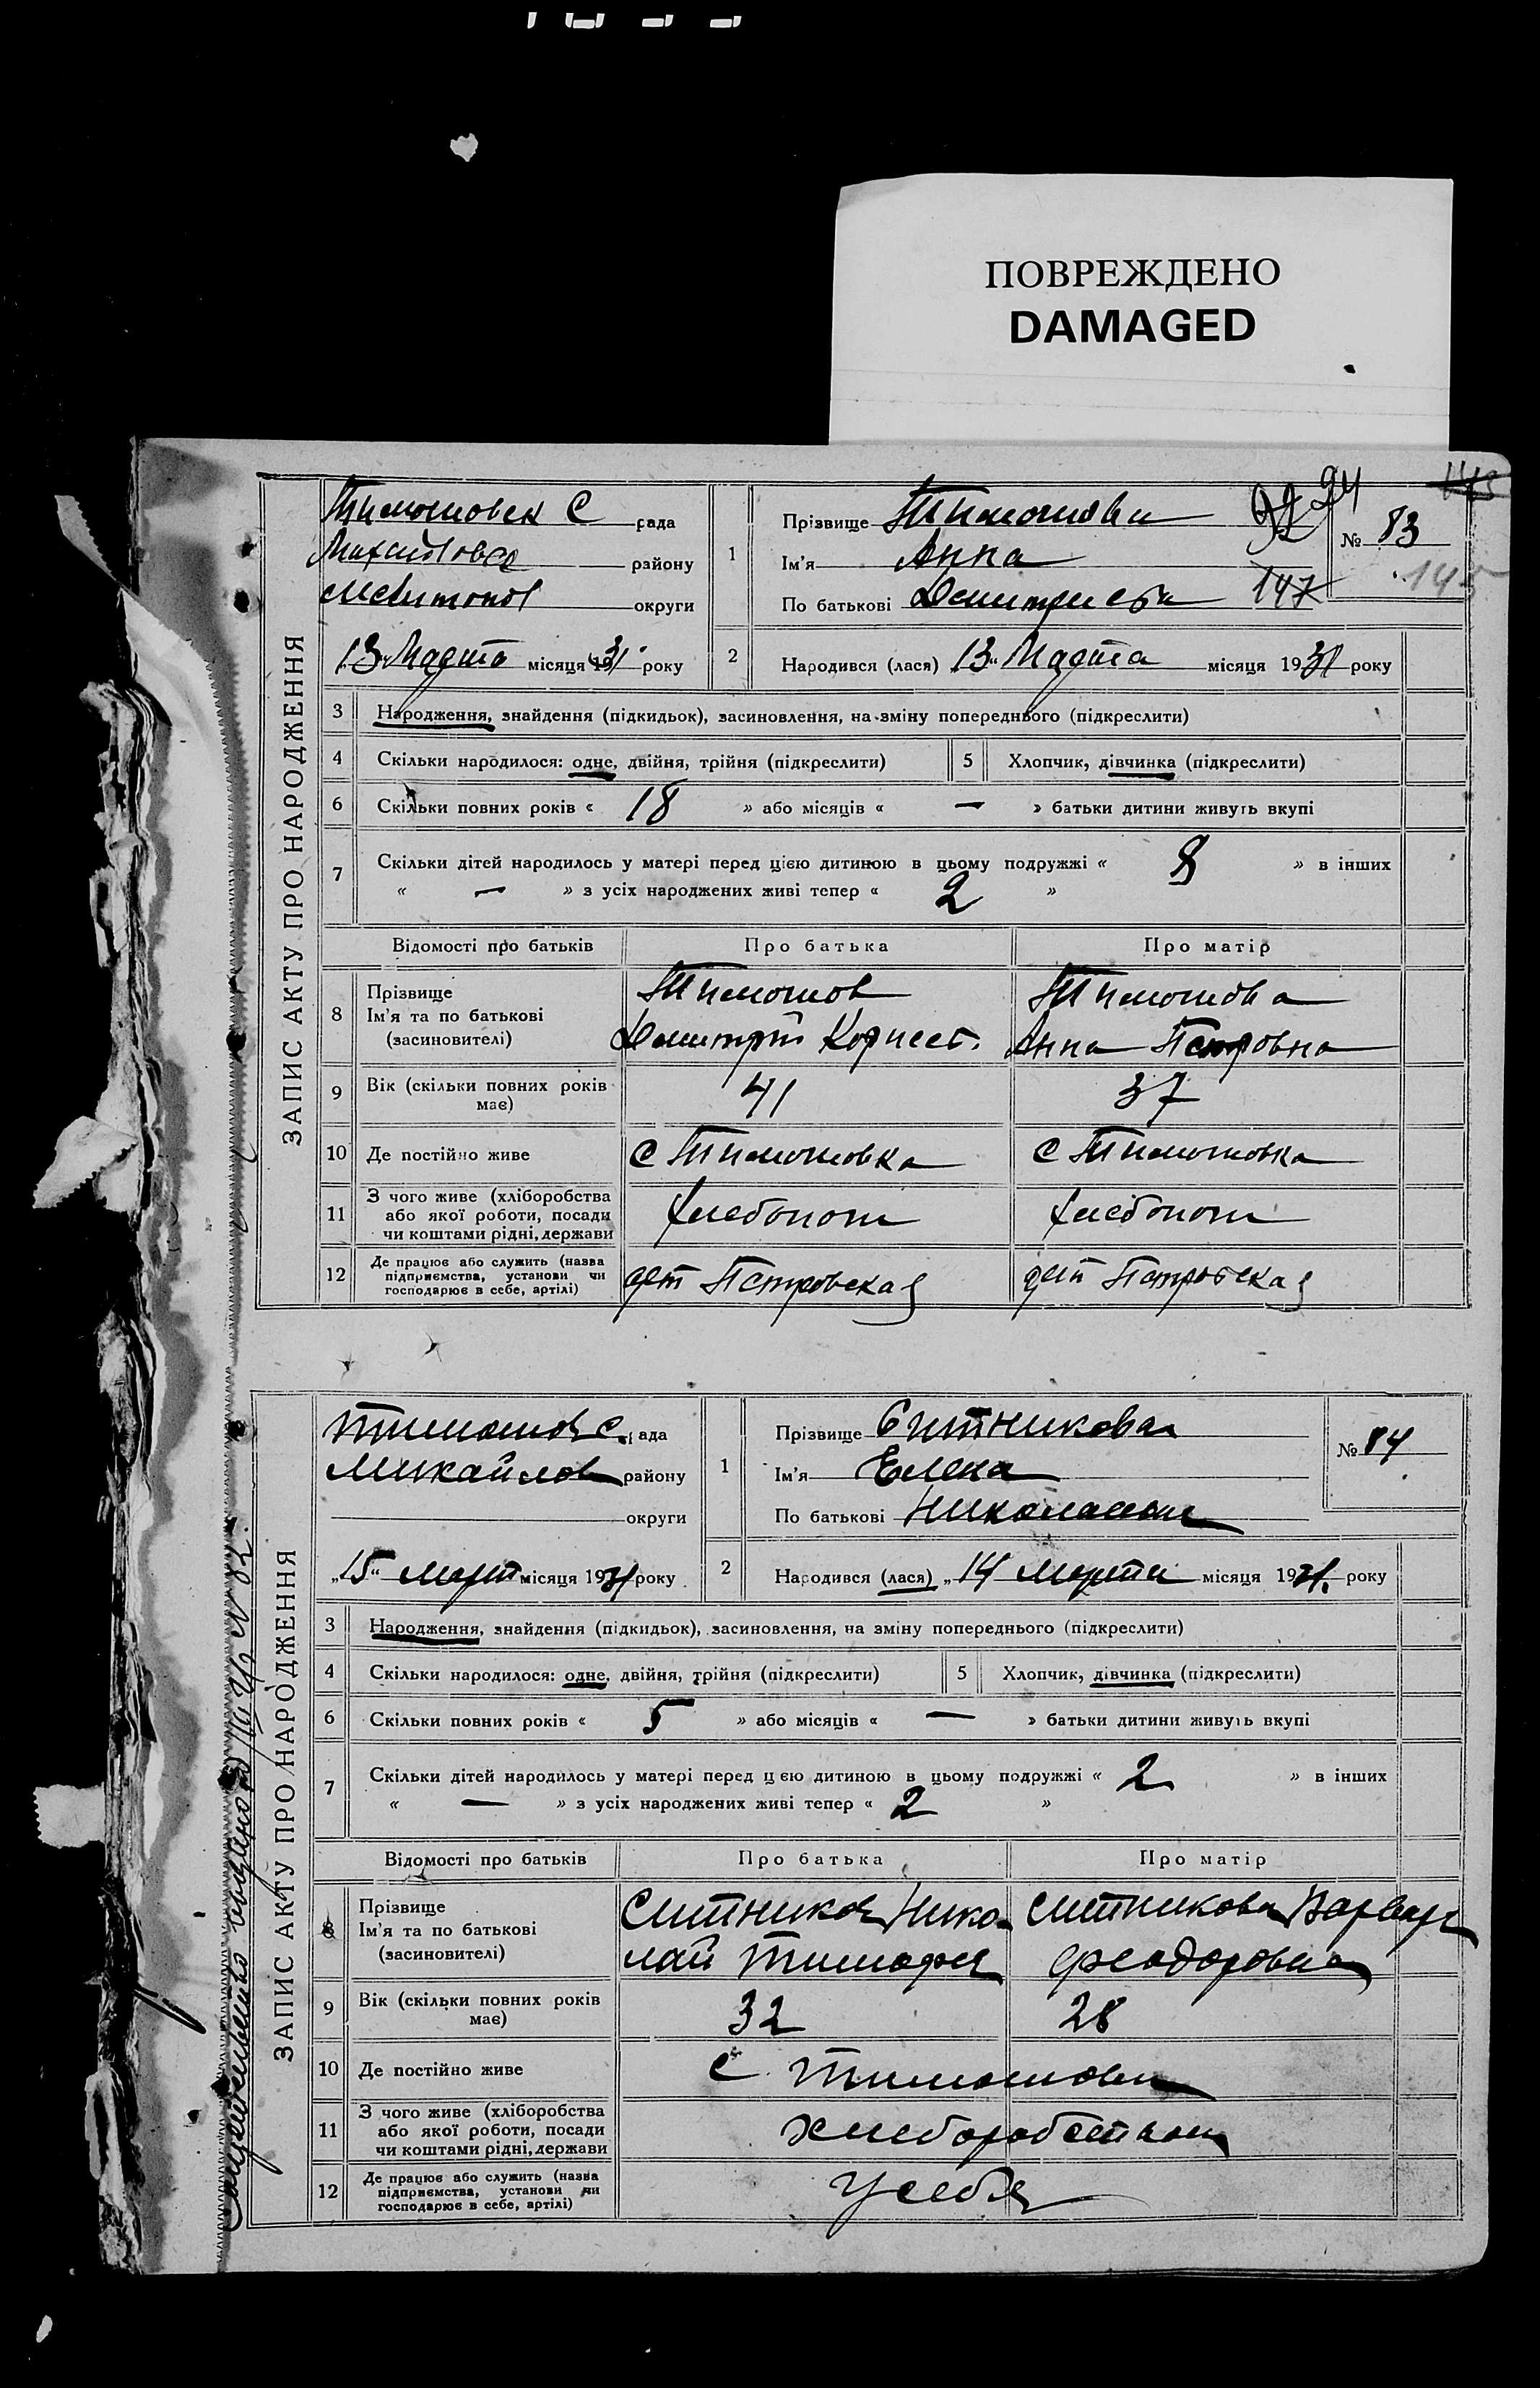 ПОВРЕЖДЕНО
DAMAGED
ЗАПИС АКТУ ПРО НАРОДЖЕННЯ
Тимошовск С рада
району
Мелитопол округи
"13" Марта місяця 1931 року
№ 83
145
1 Прізвище Тимошова 92 94
Ім'я Анна
По батькові Дмитриевна 147
2 Народився (лася) "13" Марта місяця 1931 року
3 Народження, знайдення (підкидьок), засиновлення, на зміну попереднього (підкреслити)
4 Скільки народилося: одне, двійня, трійня (підкреслити) 5 Хлопчик, дівчинка (підкреслити)
6 Скільки повних років « 18 » або місяців « — » батьки дитини живуть вкупі
7 Скільки дітей народилось у матері перед цією дитиною в цьому подружжі « 8 » в інших
« — » з усіх народжених живі тепер « 2 »
Відомості про батьків Про батька Про матір
8 Прізвище Тимошов Тимошова
Ім'я та по батькові Дмитрий Корнеев. Анна Петровна
(засиновителі)
9 Вік (скільки повних років має) 41 37
10 Де постійно живе с Тимошовка с Тимошовка
11 З чого живе (хліборобства або якої роботи, посади чи коштами рідні, держави Хлебопош Хлебопош
12 Де працює або служить (назва підприємства, установи чи господарює в себе, артілі) Петровская Петровская
ЗАПИС АКТУ ПРО НАРОДЖЕННЯ
Тимошов С. рада
Михайлов району
округи
"15" март місяця 1931 року
№ 84
1 Прізвище Ситникова
Ім'я Елена
По батькові Николаевна
2 Народився (лася) "14" марта місяця 1931. року
3 Народження, знайдення (підкидьок), засиновлення, на зміну попереднього (підкреслити)
4 Скільки народилося: одне, двійня, трійня (підкреслити) 5 Хлопчик, дівчинка (підкреслити)
6 Скільки повних років « 5 » або місяців « — » батьки дитини живуть вкупі
7 Скільки дітей народилось у матері перед цією дитиною в цьому подружжі « 2 » в інших
« — » з усіх народжених живі тепер « 2 »
Відомості про батьків Про батька Про матір
8 Прізвище Ситников Нико Ситникова Варвара
Ім'я та по батькові лай Тимофея Феодоровна
(засиновителі)
9 Вік (скільки повних років має) 32 28
10 Де постійно живе с. Тимошовка
11 З чого живе (хліборобства або якої роботи, посади чи коштами рідні, держави хлеборобством
12 Де працює або служить (назва підприємства, установи чи господарює в себе, артілі) у себя